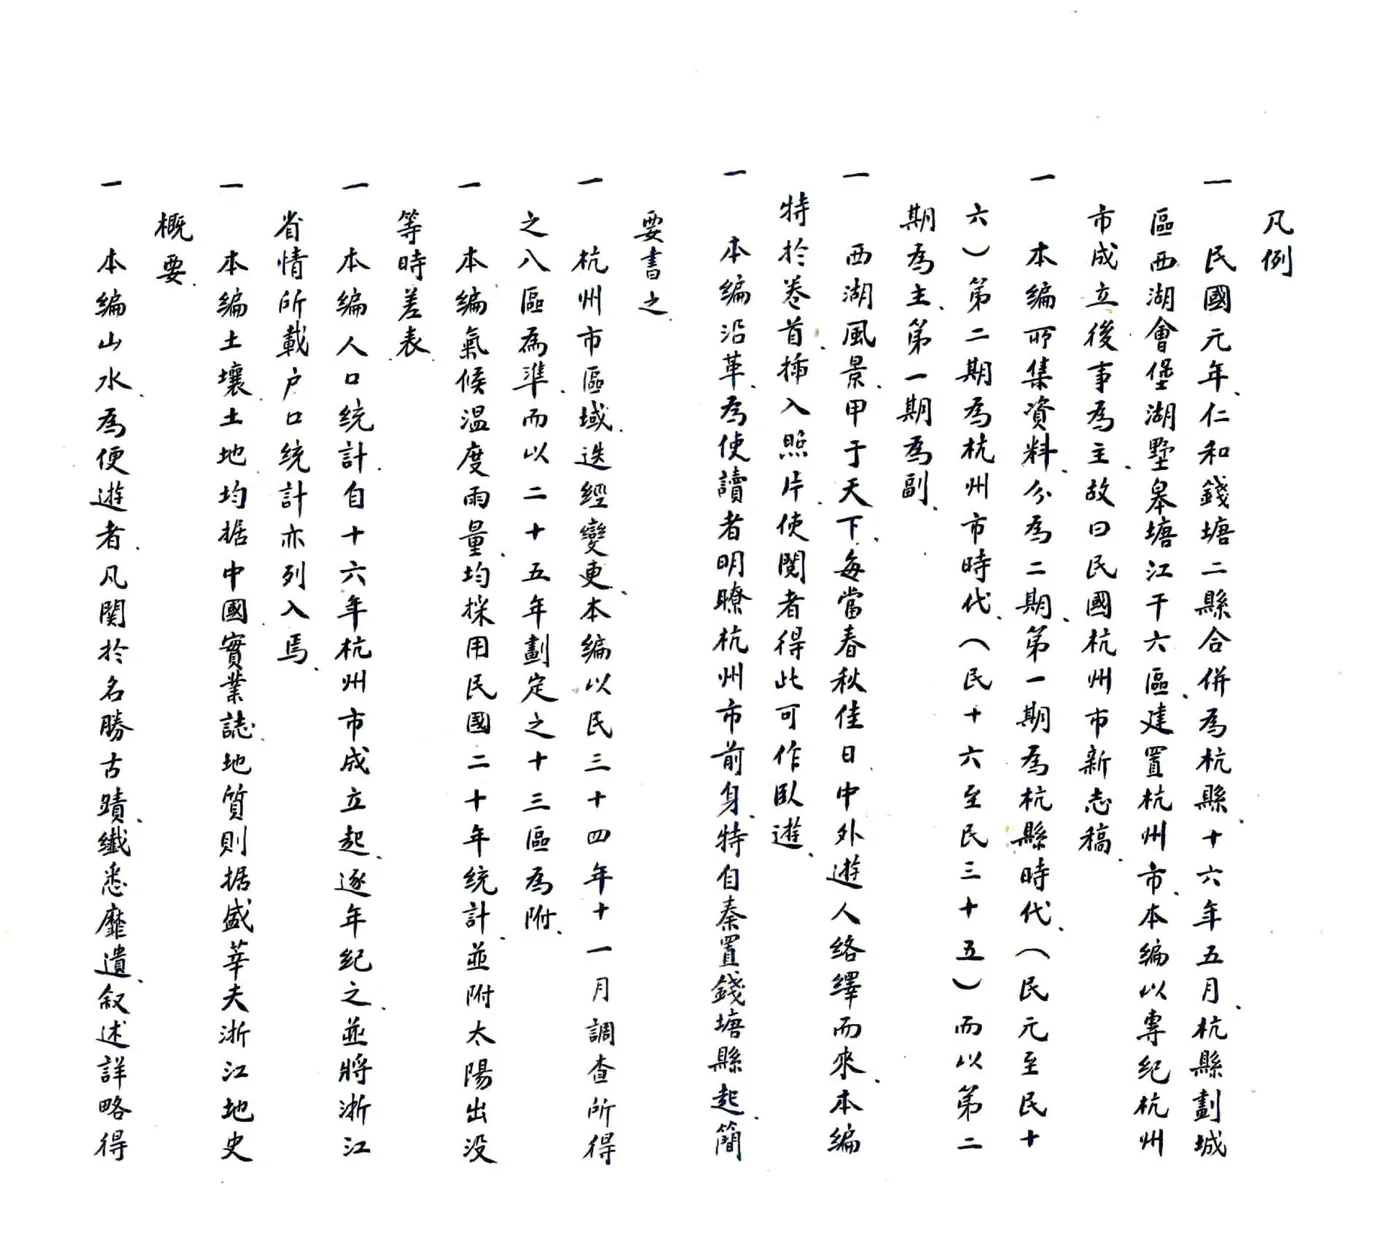 凡例
一 民國元年、仁和錢塘二縣合併為杭縣、十六年五月、杭縣劃城
區西湖會堡湖墅皋塘江干六區、建置杭州市、本編以專紀杭州
市成立後事為主、故曰民國杭州市新志稿、
一 本編所集資料、分為二期、第一期為杭縣時代、(民元至民十
六)第二期為杭州市時代、(民十六至民三十五)而以第二
期為主、第一期為副、
一 西湖風景、甲于天下、每當春秋佳日、中外遊人絡繹而來、本編
特於卷首、插入照片、使閱者得此可作臥遊、
一 本編沿革、為使讀者明瞭杭州市前身、特自秦置錢塘縣起、簡
要書之、
一 杭州市區域、迭經變更、本編以民三十四年十一月調查所得
之八區為準、而以二十五年劃定之十三區為附、
一 本編氣候温度雨量、均採用民國二十年統計、並附太陽出没
等時差表、
一 本編人口統計、自十六年杭州市成立起、逐年紀之、並將浙江
省情所載户口統計亦列入焉、
一 本編土壤、土地、均据中國實業誌、地質則据盛莘夫浙江地史
概要、
一 本編山水、為便遊者、凡関於名勝古蹟、纖悉靡遺、叙述詳略得